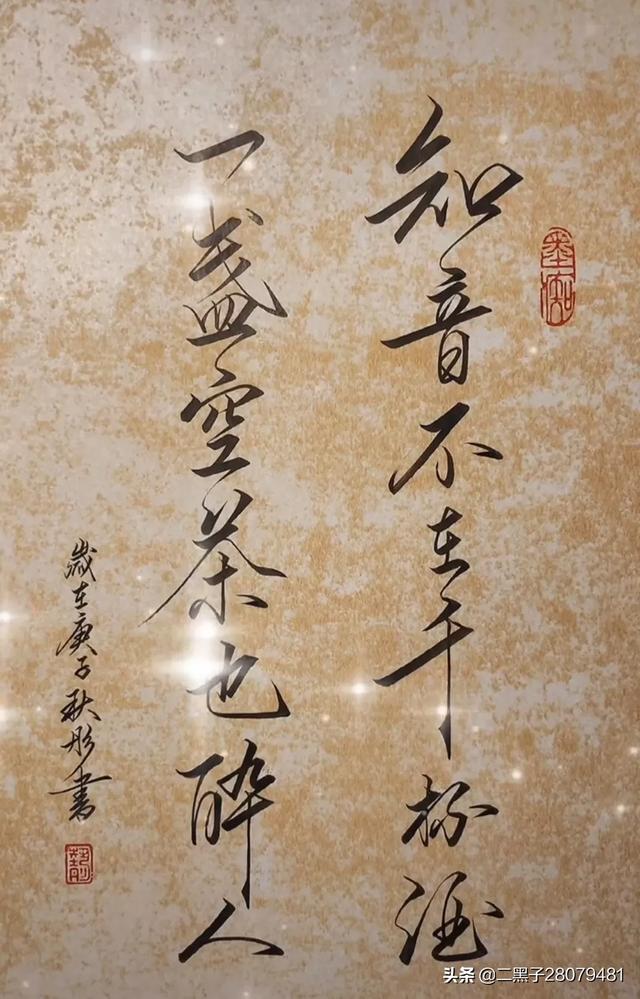 知音不在千杯酒
一盏空茶也醉人
岁在庚子秋彤书
头条 @二黑子28079481